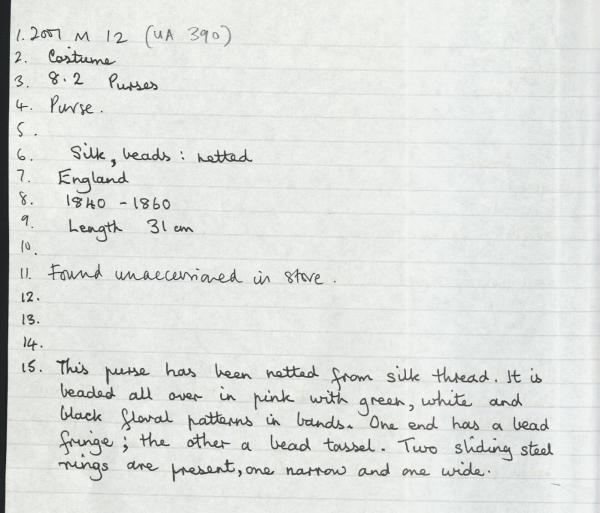 1. 2007 M 12 (UA 390)
2. Costume
3. 8.2 Purses
4. Purse.
5.
6. Silk, beads : netted
7. England
8. 1840 - 1860
9. Length 31 cm
10.
11. Found unaccessioned in store.
12.
13.
14.
15. This purse has been netted from silk thread. It is
beaded all over in pink with green, white and
black floral patterns in bands. One end has a bead
fringe; the other a bead tassel. Two sliding steel
rings are present, one narrow and one wide.